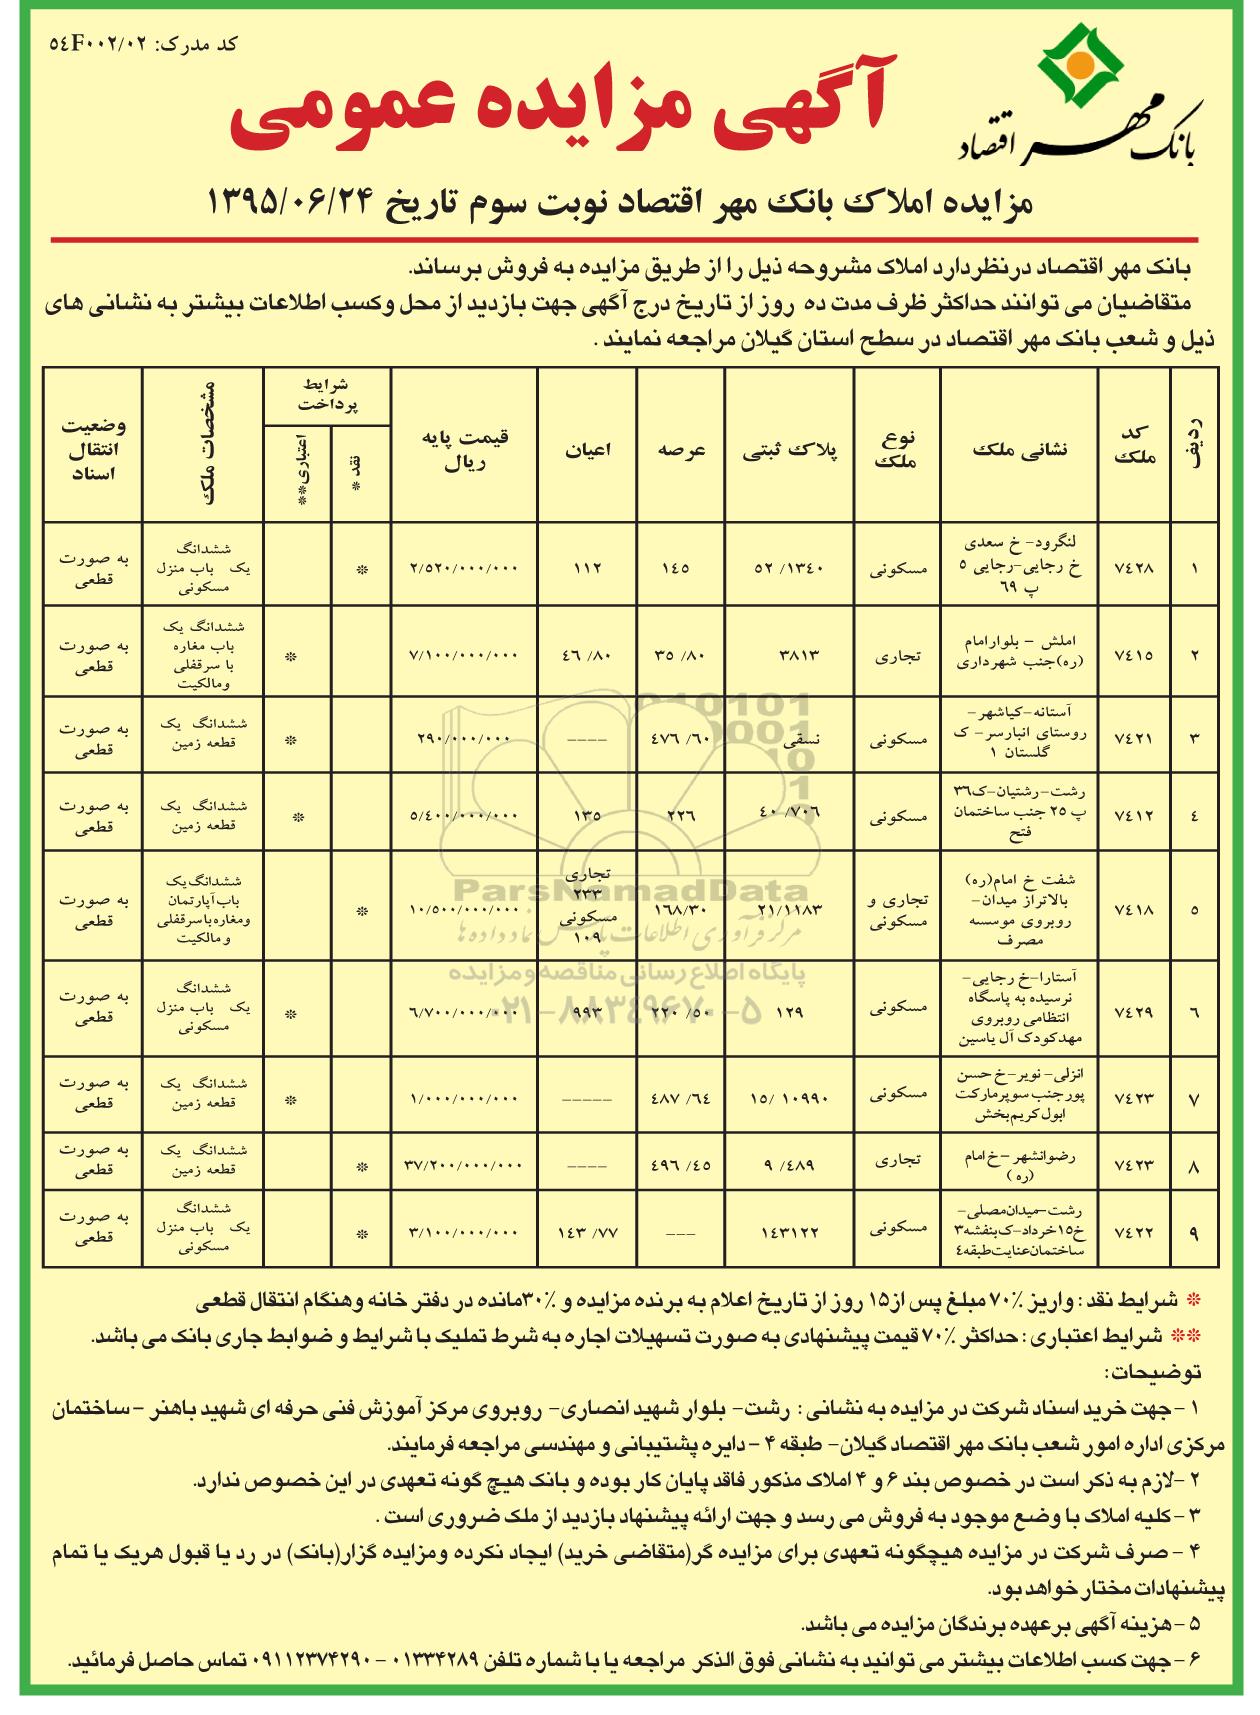 کد مدرک: ٥٤F٠٠٢/٠٢
بانک مهر اقتصاد
آگهی مزایده عمومی
مزایده املاک بانک مهر اقتصاد نوبت سوم تاریخ ۱۳۹۵/۰۶/۲۴
بانک مهر اقتصاد درنظردارد املاک مشروحه ذیل را از طریق مزایده به فروش برساند.
متقاضیان می توانند حداکثر ظرف مدت ده روز از تاریخ درج آگهی جهت بازدید از محل وکسب اطلاعات بیشتر به نشانی های
ذیل و شعب بانک مهر اقتصاد در سطح استان گیلان مراجعه نمایند .
ردیف
کد
ملک
نشانی ملک
نوع
ملک
پلاک ثبتی
عرصه
اعیان
قیمت پایه
ریال
شرایط
پرداخت
نقد *
اعتباری**
مشخصات ملک
وضعیت
انتقال
اسناد
١
٧٤٢٨
لنگرود- خ سعدی
خ رجایی-رجایی ٥
پ ٦٩
مسکونی
٥٢ /١٣٤٠
١٤٥
١١٢
٢/٥٢٠/٠٠٠/٠٠٠
*
ششدانگ
یک باب منزل
مسکونی
به صورت
قطعی
٢
٧٤١٥
املش - بلوار امام
(ره)جنب شهرداری
تجاری
٣٨١٣
٣٥ /٨٠
٤٦ /٨٠
٧/١٠٠/٠٠٠/٠٠٠
*
ششدانگ یک
باب مغازه
با سرقفلی
ومالکیت
به صورت
قطعی
٣
٧٤٢١
آستانه-کیاشهر-
روستای انبارسر- ک
گلستان ١
مسکونی
نسقی
٤٧٦ /٦٠
----
٢٩٠/٠٠٠/٠٠٠
*
ششدانگ یک
قطعه زمین
به صورت
قطعی
٤
٧٤١٢
رشت-رشتیان-ک٣٦
پ ٢٥ جنب ساختمان
فتح
مسکونی
٤٠ /٧٠٦
٢٢٦
١٣٥
٥/٤٠٠/٠٠٠/٠٠٠
*
ششدانگ یک
قطعه زمین
به صورت
قطعی
٥
٧٤١٨
شفت خ امام(ره)
بالاتراز میدان-
روبروی موسسه
مصرف
تجاری و
مسکونی
٢١/١١٨٣
١٦٨/٣٠
تجاری
٢٣٣
مسکونی
١٠٩
١٠/٥٠٠/٠٠٠/٠٠٠
*
ششدانگ یک
باب آپارتمان
ومغازه با سرقفلی
و مالکیت
به صورت
قطعی
٦
٧٤٢٩
آستارا-خ رجایی-
نرسیده به پاسگاه
انتظامی روبروی
مهدکودک آل یاسین
مسکونی
١٢٩
٢٢٠ /٥٠
٩٩٣
٦/٧٠٠/٠٠٠/٠٠٠
*
ششدانگ
یک باب منزل
مسکونی
به صورت
قطعی
٧
٧٤٢٣
انزلی- نویر-خ حسن
پور جنب سوپرمارکت
ابول کریم بخش
مسکونی
١٥/ ١٠٩٩٠
٤٨٧ /٦٤
-----
١/٠٠٠/٠٠٠/٠٠٠
*
ششدانگ یک
قطعه زمین
به صورت
قطعی
٨
٧٤٢٣
رضوانشهر -خ امام
(ره)
تجاری
٩ /٤٨٩
٤٩٦ /٤٥
----
٣٧/٢٠٠/٠٠٠/٠٠٠
*
ششدانگ یک
قطعه زمین
به صورت
قطعی
٩
٧٤٢٢
رشت-میدان مصلی-
خ١٥خرداد-ک بنفشه٣
ساختمان عنایت طبقه٤
مسکونی
١٤٣١٢٢
---
١٤٣ /٧٧
٣/١٠٠/٠٠٠/٠٠٠
*
ششدانگ
یک باب منزل
مسکونی
به صورت
قطعی
ParsNamadData
مرکز فرآوری اطلاعات پارس نماد داده ها
پایگاه اطلاع رسانی مناقصه و مزایده
۰۲۱-۸۸۳۴۹۶۷۰-۵
* شرایط نقد : واریز ۷۰٪ مبلغ پس از۱۵ روز از تاریخ اعلام به برنده مزایده و ۳۰٪مانده در دفتر خانه وهنگام انتقال قطعی
** شرایط اعتباری : حداکثر ۷۰٪ قیمت پیشنهادی به صورت تسهیلات اجاره به شرط تملیک با شرایط و ضوابط جاری بانک می باشد.
توضیحات:
۱ -جهت خرید اسناد شرکت در مزایده به نشانی : رشت- بلوار شهید انصاری- روبروی مرکز آموزش فنی حرفه ای شهید باهنر -ساختمان
مرکزی اداره امور شعب بانک مهر اقتصاد گیلان- طبقه ۴ -دایره پشتیبانی و مهندسی مراجعه فرمایند.
۲ -لازم به ذکر است در خصوص بند ۶ و ۴ املاک مذکور فاقد پایان کار بوده و بانک هیچ گونه تعهدی در این خصوص ندارد.
۳ -کلیه املاک با وضع موجود به فروش می رسد و جهت ارائه پیشنهاد بازدید از ملک ضروری است .
۴ - صرف شرکت در مزایده هیچگونه تعهدی برای مزایده گر(متقاضی خرید) ایجاد نکرده ومزایده گزار(بانک) در رد یا قبول هریک یا تمام
پیشنهادات مختار خواهد بود.
۵ -هزینه آگهی برعهده برندگان مزایده می باشد.
۶ -جهت کسب اطلاعات بیشتر می توانید به نشانی فوق الذکر مراجعه یا با شماره تلفن ۰۱۳۳۴۲۸۹ - ۰۹۱۱۲۳۷۴۲۹۰ تماس حاصل فرمائید.